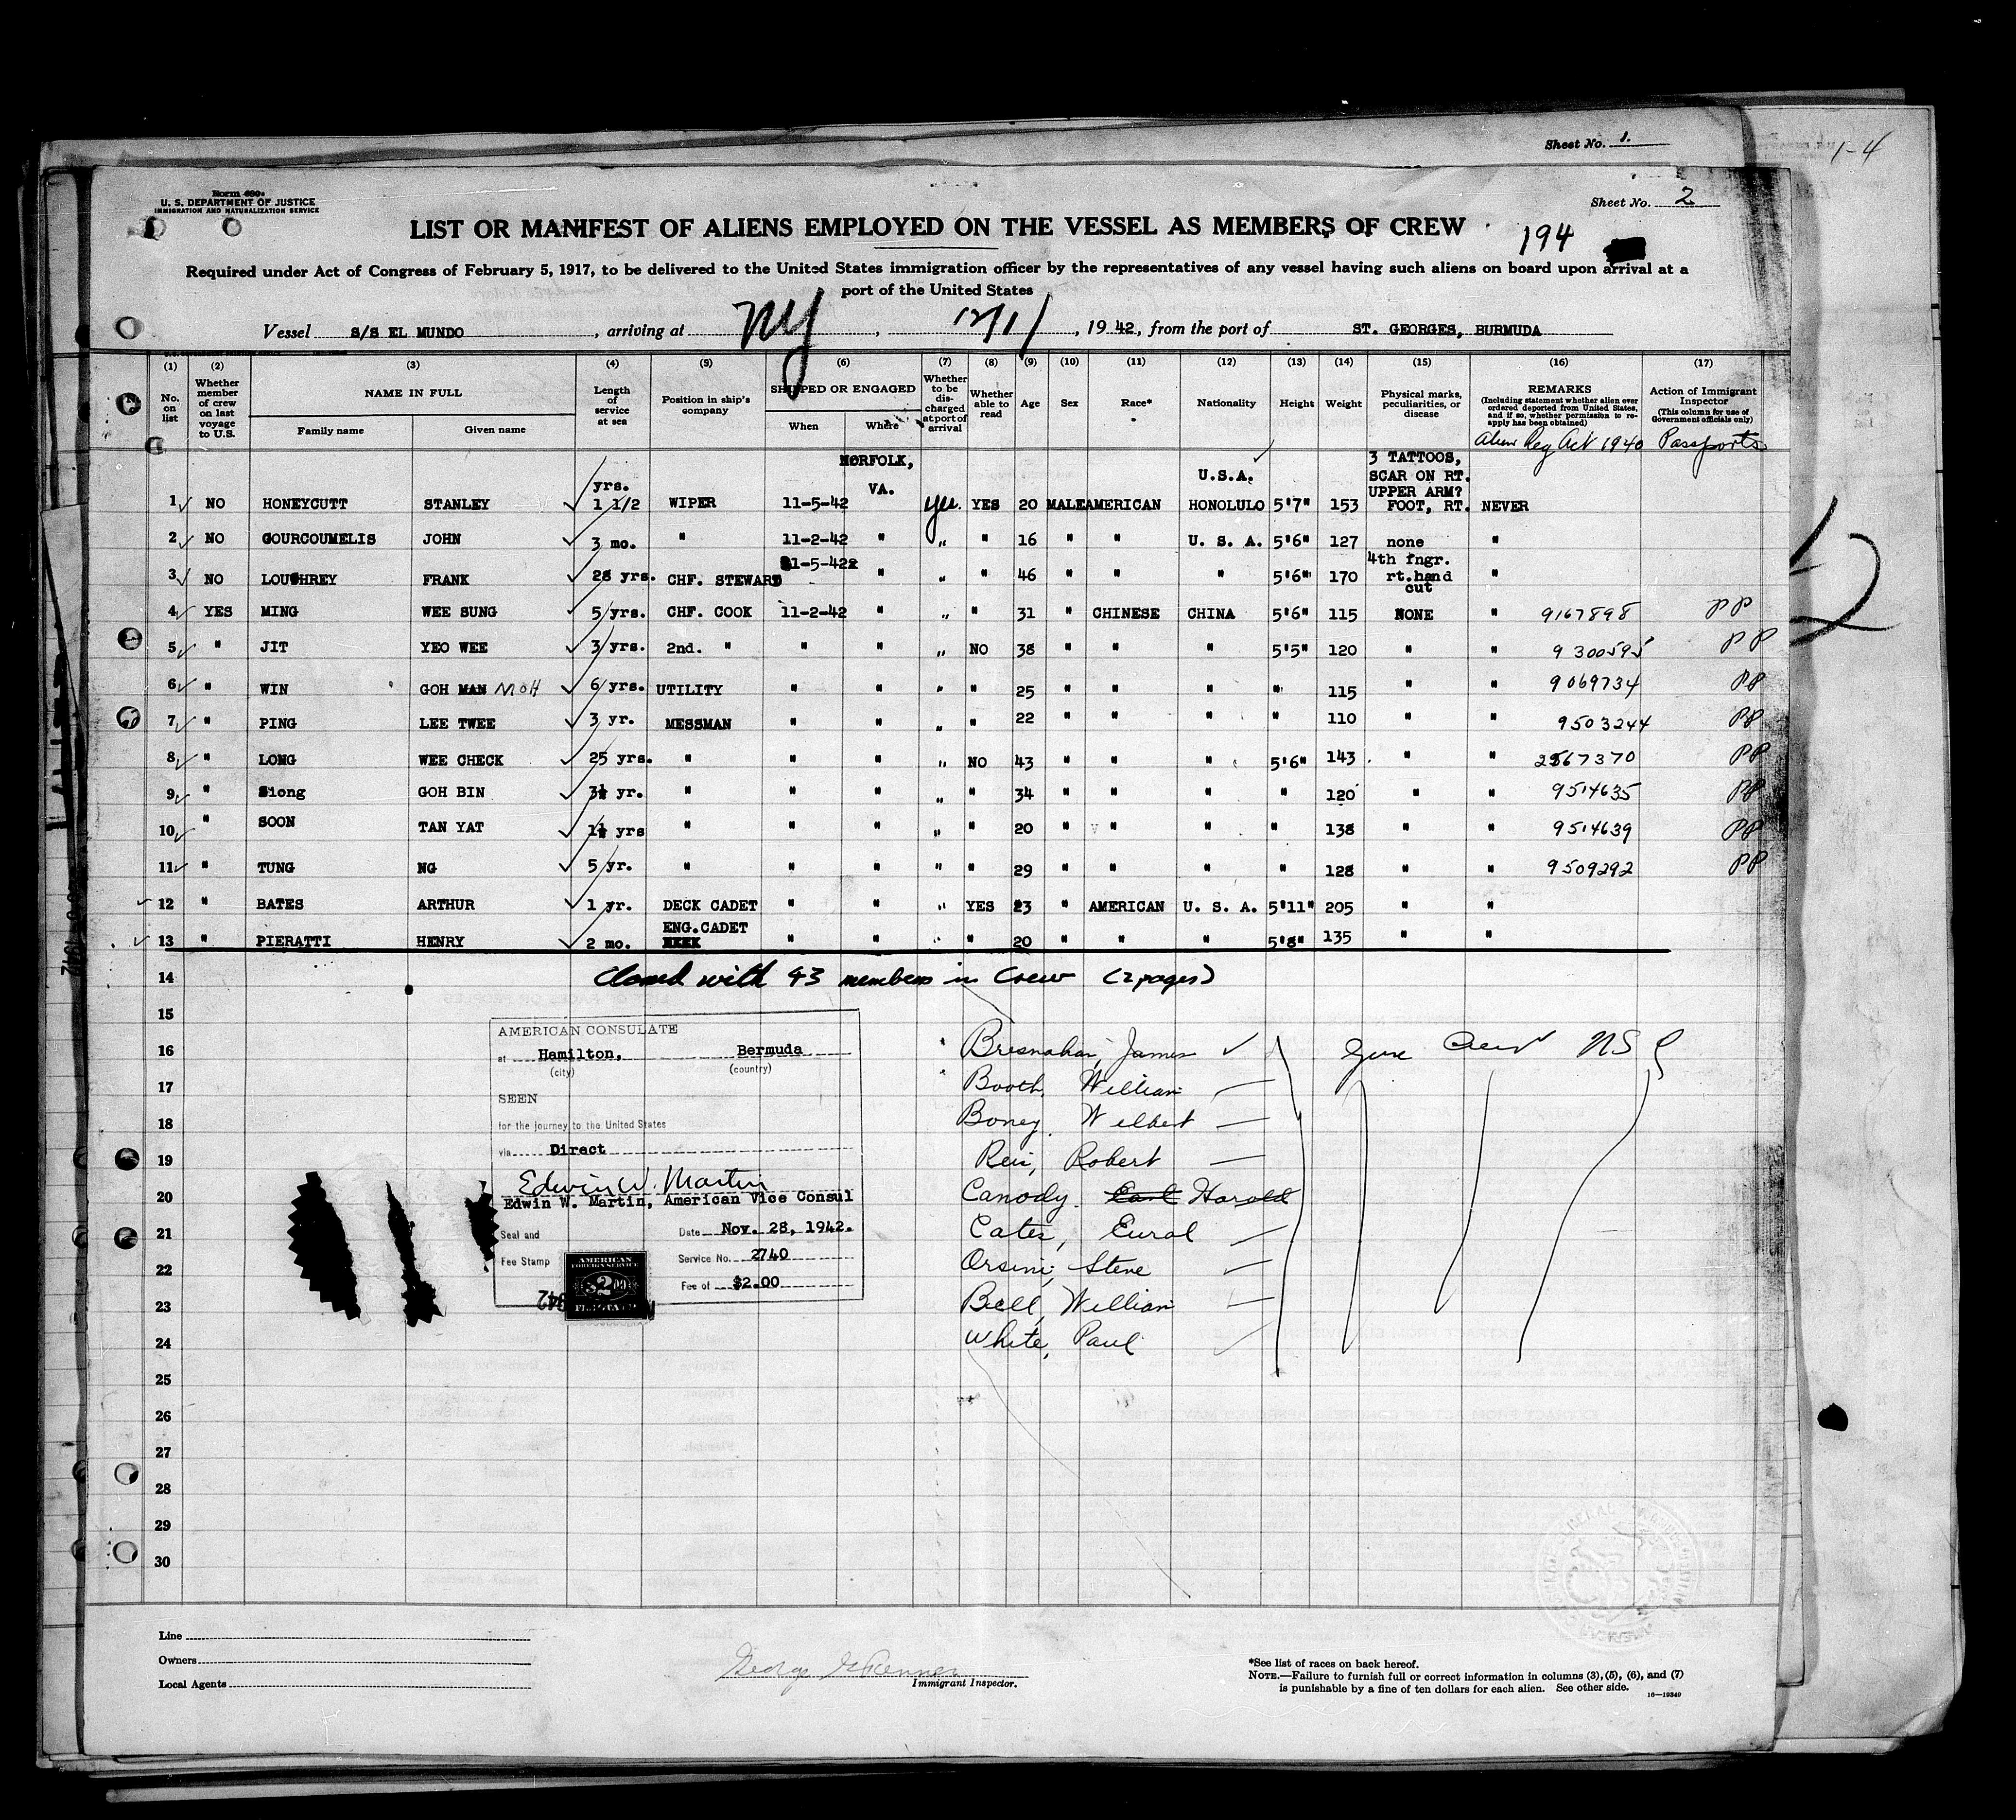 Sheet No. 1.
1-4
Form 680
U. S. DEPARTMENT OF JUSTICE
IMMIGRATION AND NATURALIZATION SERVICE
Sheet No. 2
LIST OR MANIFEST OF ALIENS EMPLOYED ON THE VESSEL AS MEMBERS OF CREW
194
Required under Act of Congress of February 5, 1917, to be delivered to the United States immigration officer by the representatives of any vessel having such aliens on board upon arrival at a
port of the United States
Vessel S/S EL MUNDO, arriving at NY, 12/1/, 1942, from the port of ST. GEORGES, BURMUDA
(1) (2) (3) (4) (5) (6) (7) (8) (9) (10) (11) (12) (13) (14) (15) (16) (17)
No. on list Whether member of crew on last voyage to U.S. NAME IN FULL Family name Given name Length of service at sea Position in ship's company SHIPPED OR ENGAGED When Where Whether to be discharged at port of arrival Whether able to read Age Sex Race* Nationality Height Weight Physical marks, peculiarities, or disease REMARKS (Including statement whether alien ever ordered deported from United States, and if so, whether permission to reapply has been obtained) Action of Immigrant Inspector (This column for use of Government officials only)
Alien Reg Act 1940 Passports
1 NO HONEYCUTT STANLEY yrs. 1 1/2 WIPER 11-5-42 NORFOLK, VA. yes. YES 20 MALE AMERICAN U.S.A. HONOLULO 5'7" 153 3 TATTOOS, SCAR ON RT. UPPER ARM? FOOT, RT. NEVER
2 NO GOURCOUMELIS JOHN 3 mo. " 11-2-42 " " " 16 " " U. S. A. 5'6" 127 none "
3 NO LOUGHREY FRANK 28 yrs. CHF. STEWARD 11-5-42 " " " 46 " " " 5'6" 170 4th fngr. rt.hand cut "
4 YES MING WEE SUNG 5 yrs. CHF. COOK 11-2-42 " " " 31 " CHINESE CHINA 5'6" 115 NONE " 9167898 PP
5 " JIT YEO WEE 3 yrs. 2nd. " " " " NO 38 " " " 5'5" 120 " " 9300595 PP
6 " WIN GOH MAN MOH 6 yrs. UTILITY " " " " 25 " " " " 115 " " 9069734 PP
7 " PING LEE TWEE 3 yr. MESSMAN " " " " 22 " " " " 110 " " 9503244 PP
8 " LONG WEE CHECK 25 yrs. " " " " NO 43 " " " 5'6" 143 " " 2867370 PP
9 " Siong GOH BIN 3½ yr. " " " " " 34 " " " " 120 " " 9514635 PP
10 " SOON TAN YAT 1½ yrs " " " " " 20 " " " " 138 " " 9514639 PP
11 " TUNG NG 5 yr. " " " " " 29 " " " " 128 " " 9509292 PP
12 " BATES ARTHUR 1 yr. DECK CADET " " " YES 23 " AMERICAN U. S. A. 5'11" 205 " "
13 " PIERATTI HENRY 2 mo. ENG.CADET " " " " 20 " " " 5'8" 135 " "
14 Closed with 43 members in Crew (2 pages)
15
16 Bresnahan, James Gun Crew
17 Booth, William
18 Boney, Wilbert
19 Reis, Robert
20 Canody, Earl Harold
21 Cates, Eural
22 Orsini, Steve
23 Bell, William
24 White, Paul
25
26
27
28
29
30
AMERICAN CONSULATE
at Hamilton, Bermuda
(city) (country)
SEEN
for the journey to the United States
via Direct
Edwin W. Martin
Edwin W. Martin, American Vice Consul
Seal and Date Nov. 28, 1942.
Fee Stamp Service No. 2740
Fee of $2.00
AMERICAN FOREIGN SERVICE
Line
Owners
Local Agents
Immigrant Inspector.
*See list of races on back hereof.
NOTE.—Failure to furnish full or correct information in columns (3), (5), (6), and (7)
is punishable by a fine of ten dollars for each alien. See other side.
16—19349